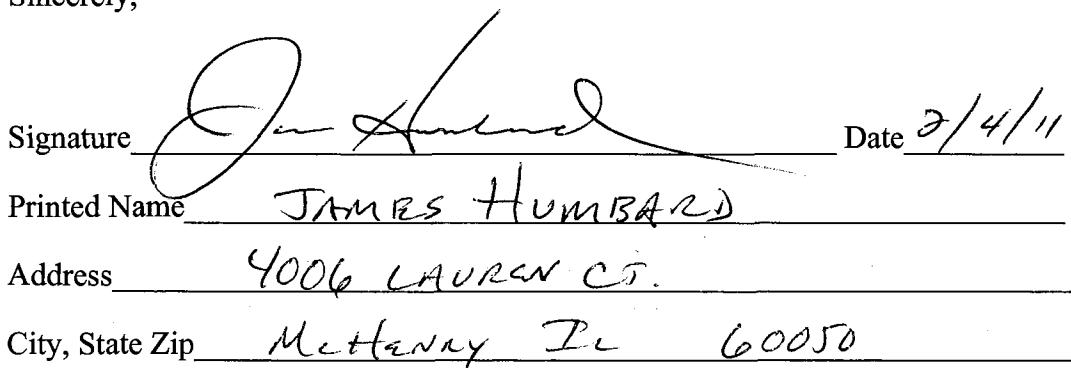 Sincerely,
Signature James Humbard Date 2/4/11
Printed Name JAMES HUMBARD
Address 4006 LAUREN CT.
City, State Zip McHENRY IL 60050